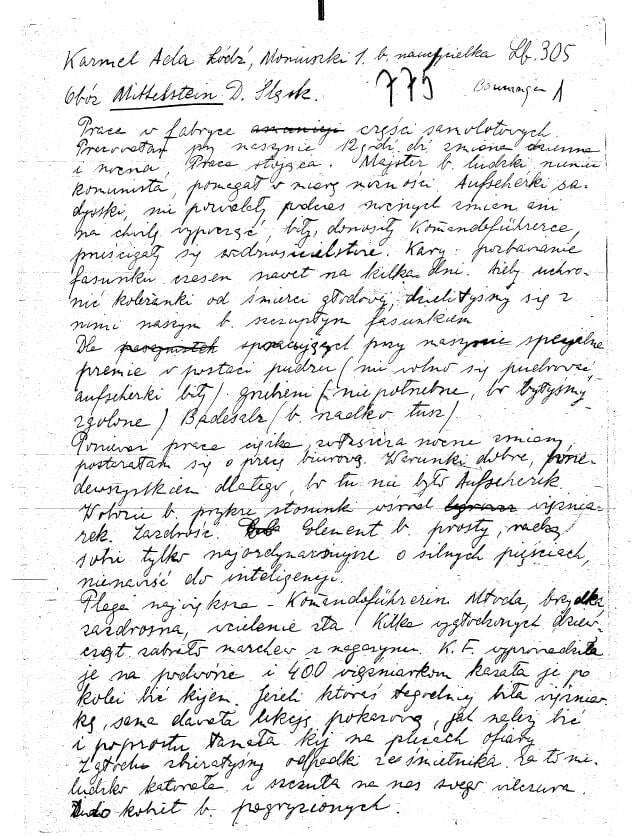 Karmel Ada Łódź, Moniuszki 1. b. nauczycielka Lb. 305
Obóz Mittelstein D. Śląsk. 775
Praca w fabryce części samolotowych.
Pracowałam przy maszynie 12 godz. dz. zmiana dzienna
i nocna, Praca stojąca. Majster b. ludzki niemiec
komunista, pomagał w miarę możności. Aufseherki sa-
dystki, nie pozwalały podczas nocnych zmian ani
na chwilę wypocząć, biły, donosiły Komandoführerce,
prześcigały się w okrucieństwie. Kary: pozbawianie
fasunku czasem nawet na kilka dni. Żeby uchro-
nić koleżanki od śmierci głodowej, dzieliłyśmy się z
nimi naszym b. szczupłym fasunkiem
Dla pracujących przy maszynie specjalne
premie w postaci pudru (nie wolno się pudrować,
aufseherki biły) grzebieni (niepotrzebne, bo byłyśmy
zgolone) Badesalz (b. rzadko tusz)
Ponieważ praca ciężka, zwłaszcza nocne zmiany
postarałam się o pracę biurową. Warunki dobre, prze-
dewszystkiem dlatego, bo tu nie było Aufseherek.
W obozie b. przykre stosunki wśród więźnia-
rek. Zazdrość. Element b. prosty, radzą
sobie tylko najordynarniejsze o silnych pięściach,
nienawiść do inteligencji.
Plaga największa - Komandoführerin Młoda, brzydka,
zazdrosna, wcielenie zła Kilka wygłodzonych dziew-
cząt zabrało marchew z magazynu. K.F. wyprowadziła
je na podwórze i 400 więźniarkom kazała je po
kolei bić kijem. Jeżeli któraś łagodniej biła więźniar
kę, sama dawała lekcję pokazową, jak należy bić
i poprostu łamała kij na plecach ofiary
Z głodu zbierałyśmy odpadki ze śmietnika za to nie-
ludzko katowała i szczuła na nas swego wilczura.
Dużo kobiet b. pogryzionych.